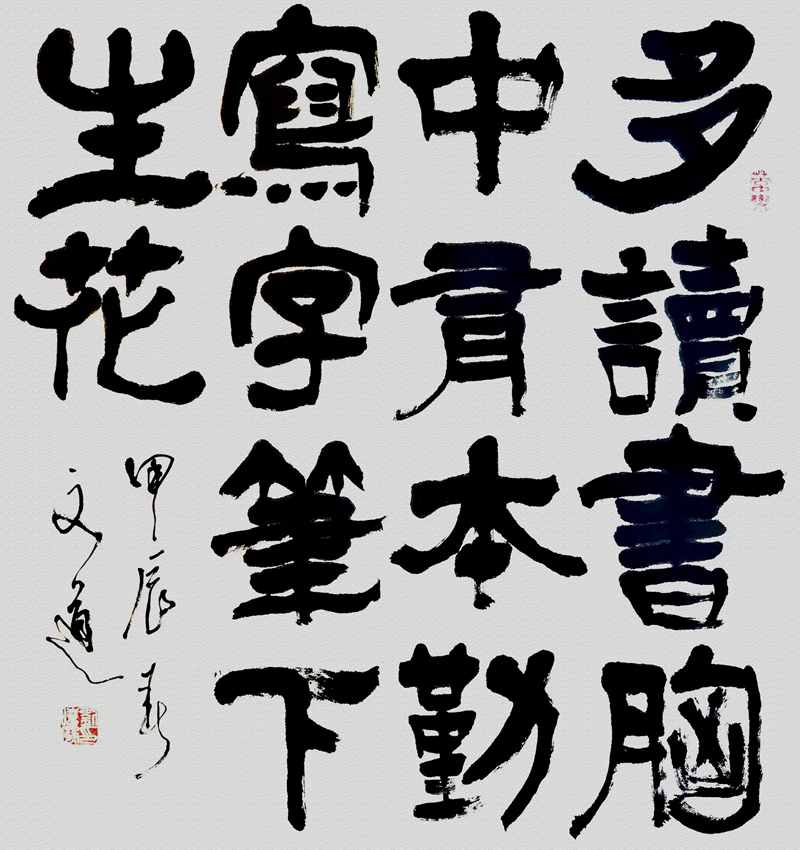 多讀書胸
中有本勤
寫字筆下
生花
甲辰春
文道